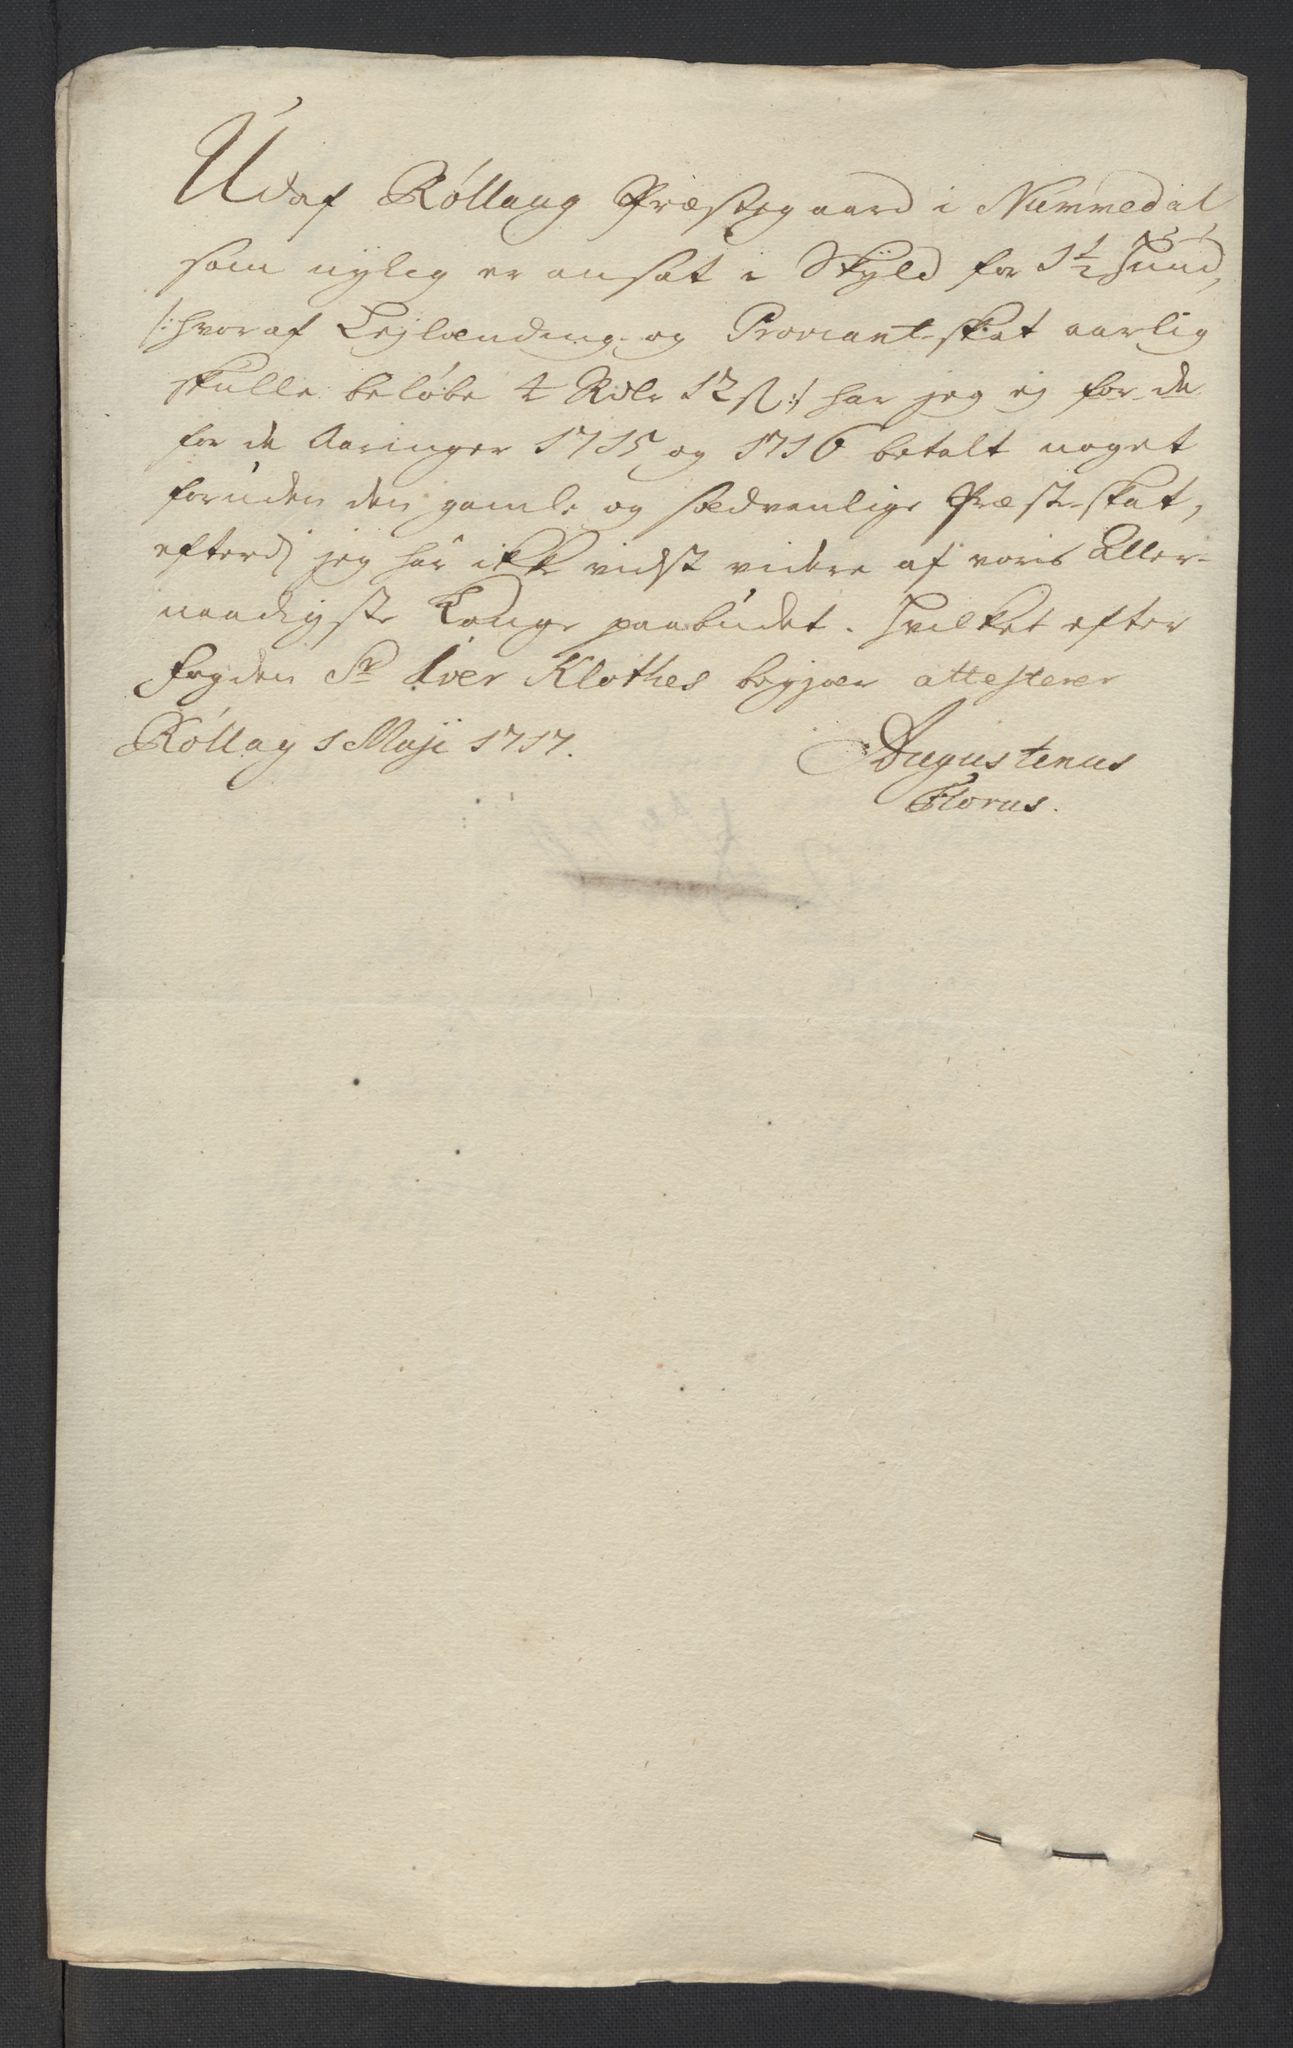 Udaf Röllaug Præstegaard i Nummedal
som nylig er ansat i Skyld for 1½ Huud,
/: hvoraf Lejlænding- og Proviant-skat aarlig
skulle beløbe 4 Rdlr 12 ß :/ har jeg ej for de
for de Aaringer 1715 og 1716 betalt noget
foruden den gamle og sædvanlige Præste-skat,
efterdj jeg har ikke vidst videre af voris Aller-
naadigste Konge paabudet. Hvilket efter
fogden Sr Iver Klothes begjær attesterer
Röllag 1 Maji 1717.
Augustinus
Florus.